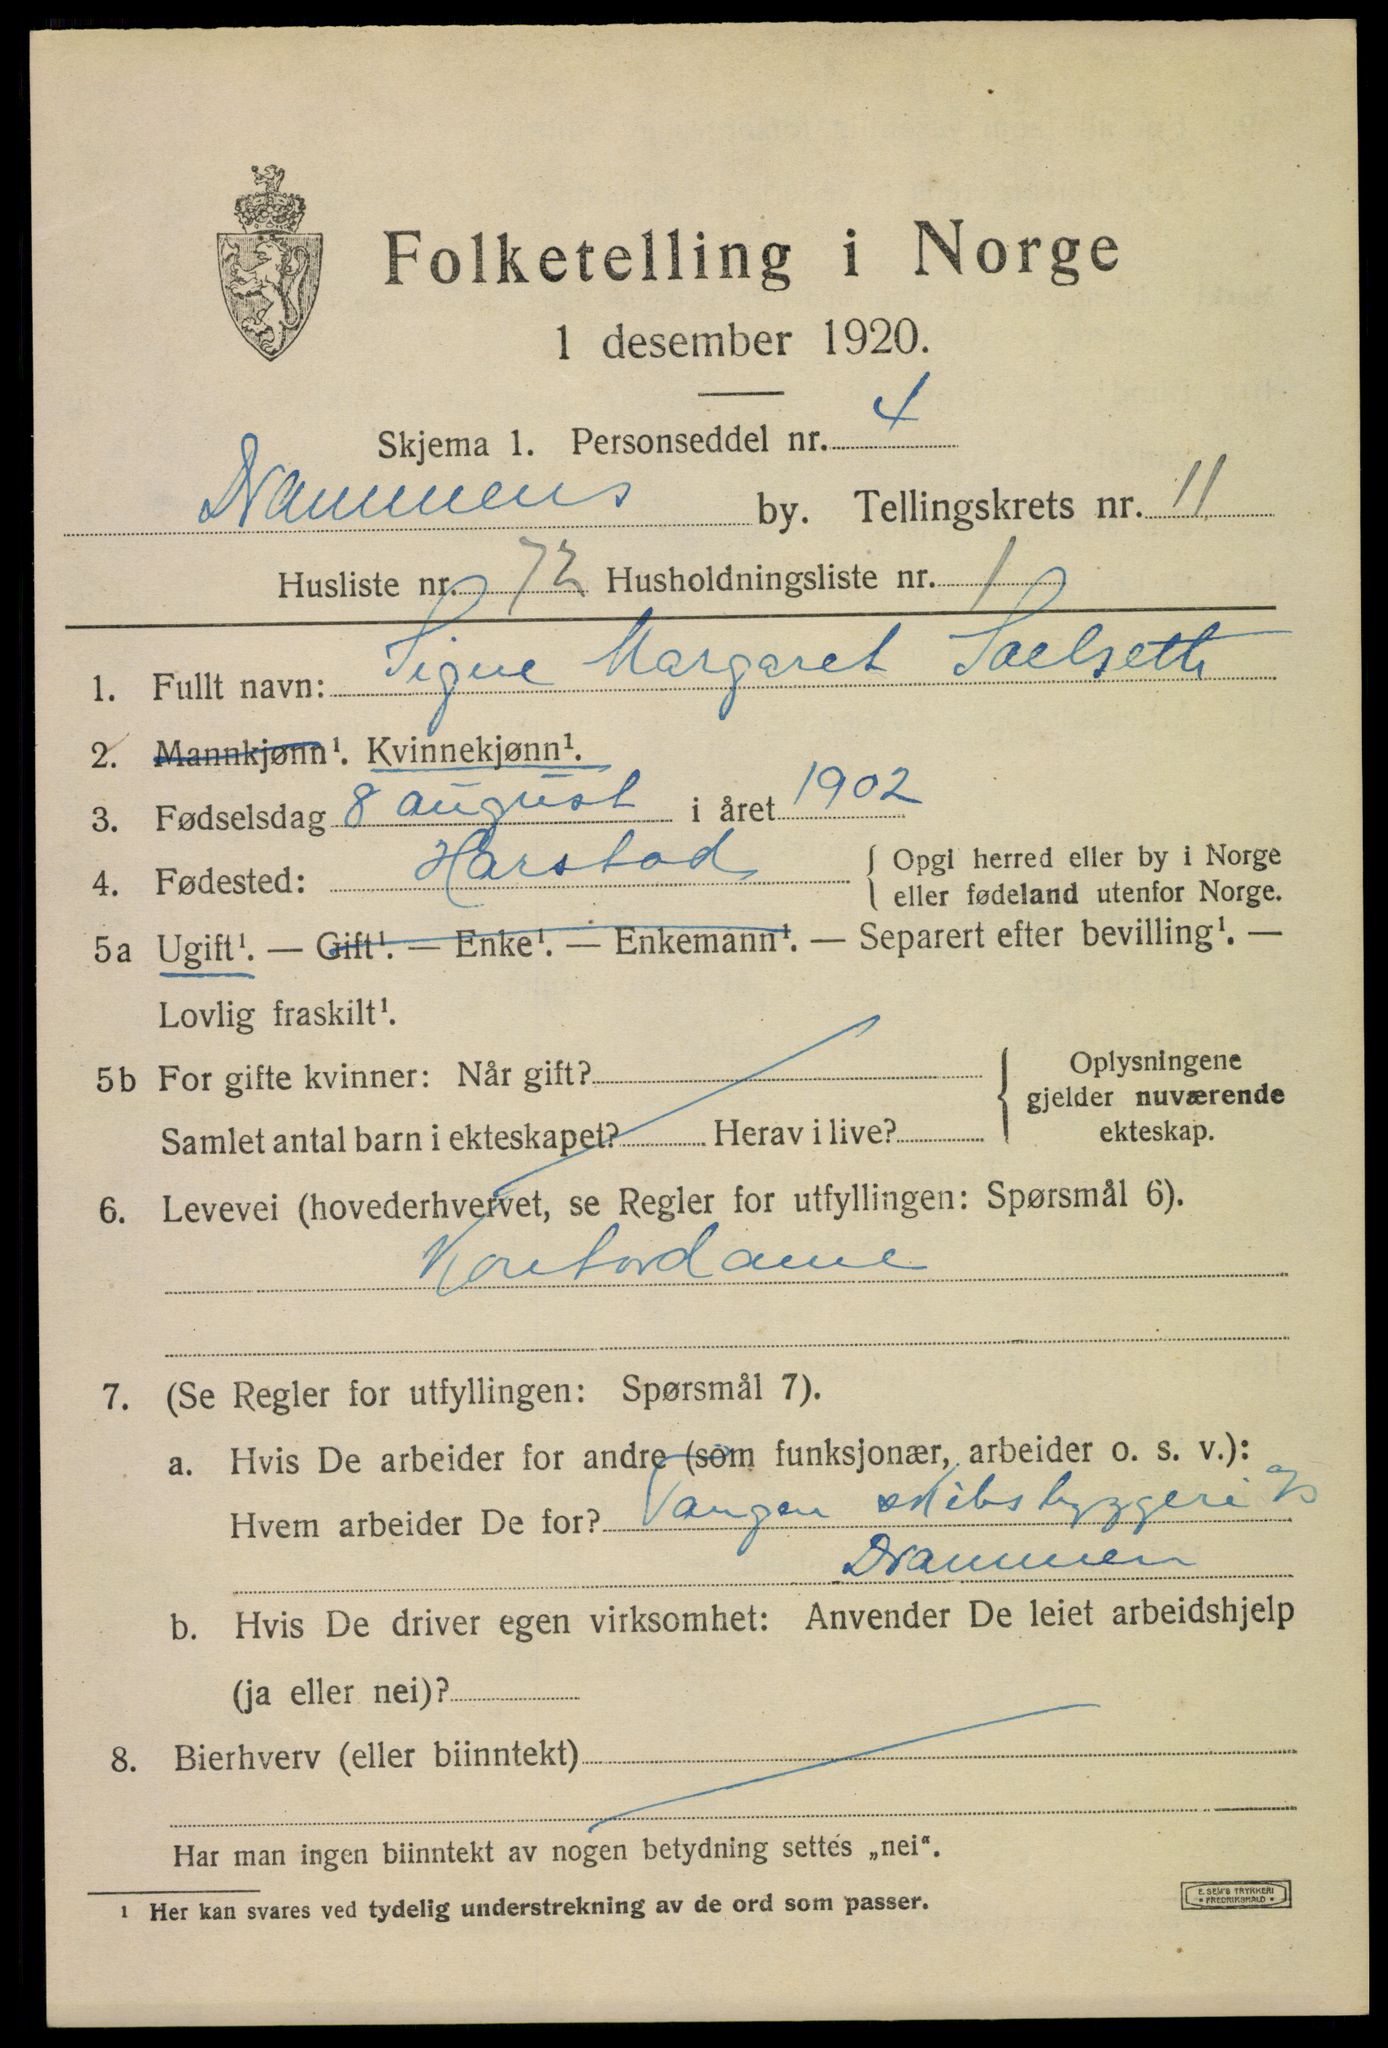 Folketelling i Norge
1 desember 1920.
Skjema 1. Personseddel nr. 4
Drammens by. Tellingskrets nr. 11
Husliste nr. 72 Husholdningsliste nr. 1
1. Fullt navn: Signe Margaret Saelseth
2. Mannkjønn¹. Kvinnekjønn¹.
3. Fødselsdag 8 august i året 1902
4. Fødested: Harstad { Opgi herred eller by i Norge
eller fødeland utenfor Norge.
5a Ugift¹. — Gift¹. — Enke¹. — Enkemann¹. — Separert efter bevilling¹. —
Lovlig fraskilt¹.
5b For gifte kvinner: Når gift? { Oplysningene
gjelder nuværende
Samlet antal barn i ekteskapet? Herav i live? ekteskap.
6. Levevei (hovederhvervet, se Regler for utfyllingen: Spørsmål 6).
Kontordame
7. (Se Regler for utfyllingen: Spørsmål 7).
a. Hvis De arbeider for andre (som funksjonær, arbeider o. s. v.):
Hvem arbeider De for? Vangen skibsbyggeri A/S
Drammen
b. Hvis De driver egen virksomhet: Anvender De leiet arbeidshjelp
(ja eller nei)?
8. Bierhverv (eller biinntekt)
Har man ingen biinntekt av nogen betydning settes „nei“.
¹ Her kan svares ved tydelig understrekning av de ord som passer.
E. SEM'S TRYKKERI
FREDRIKSHALD